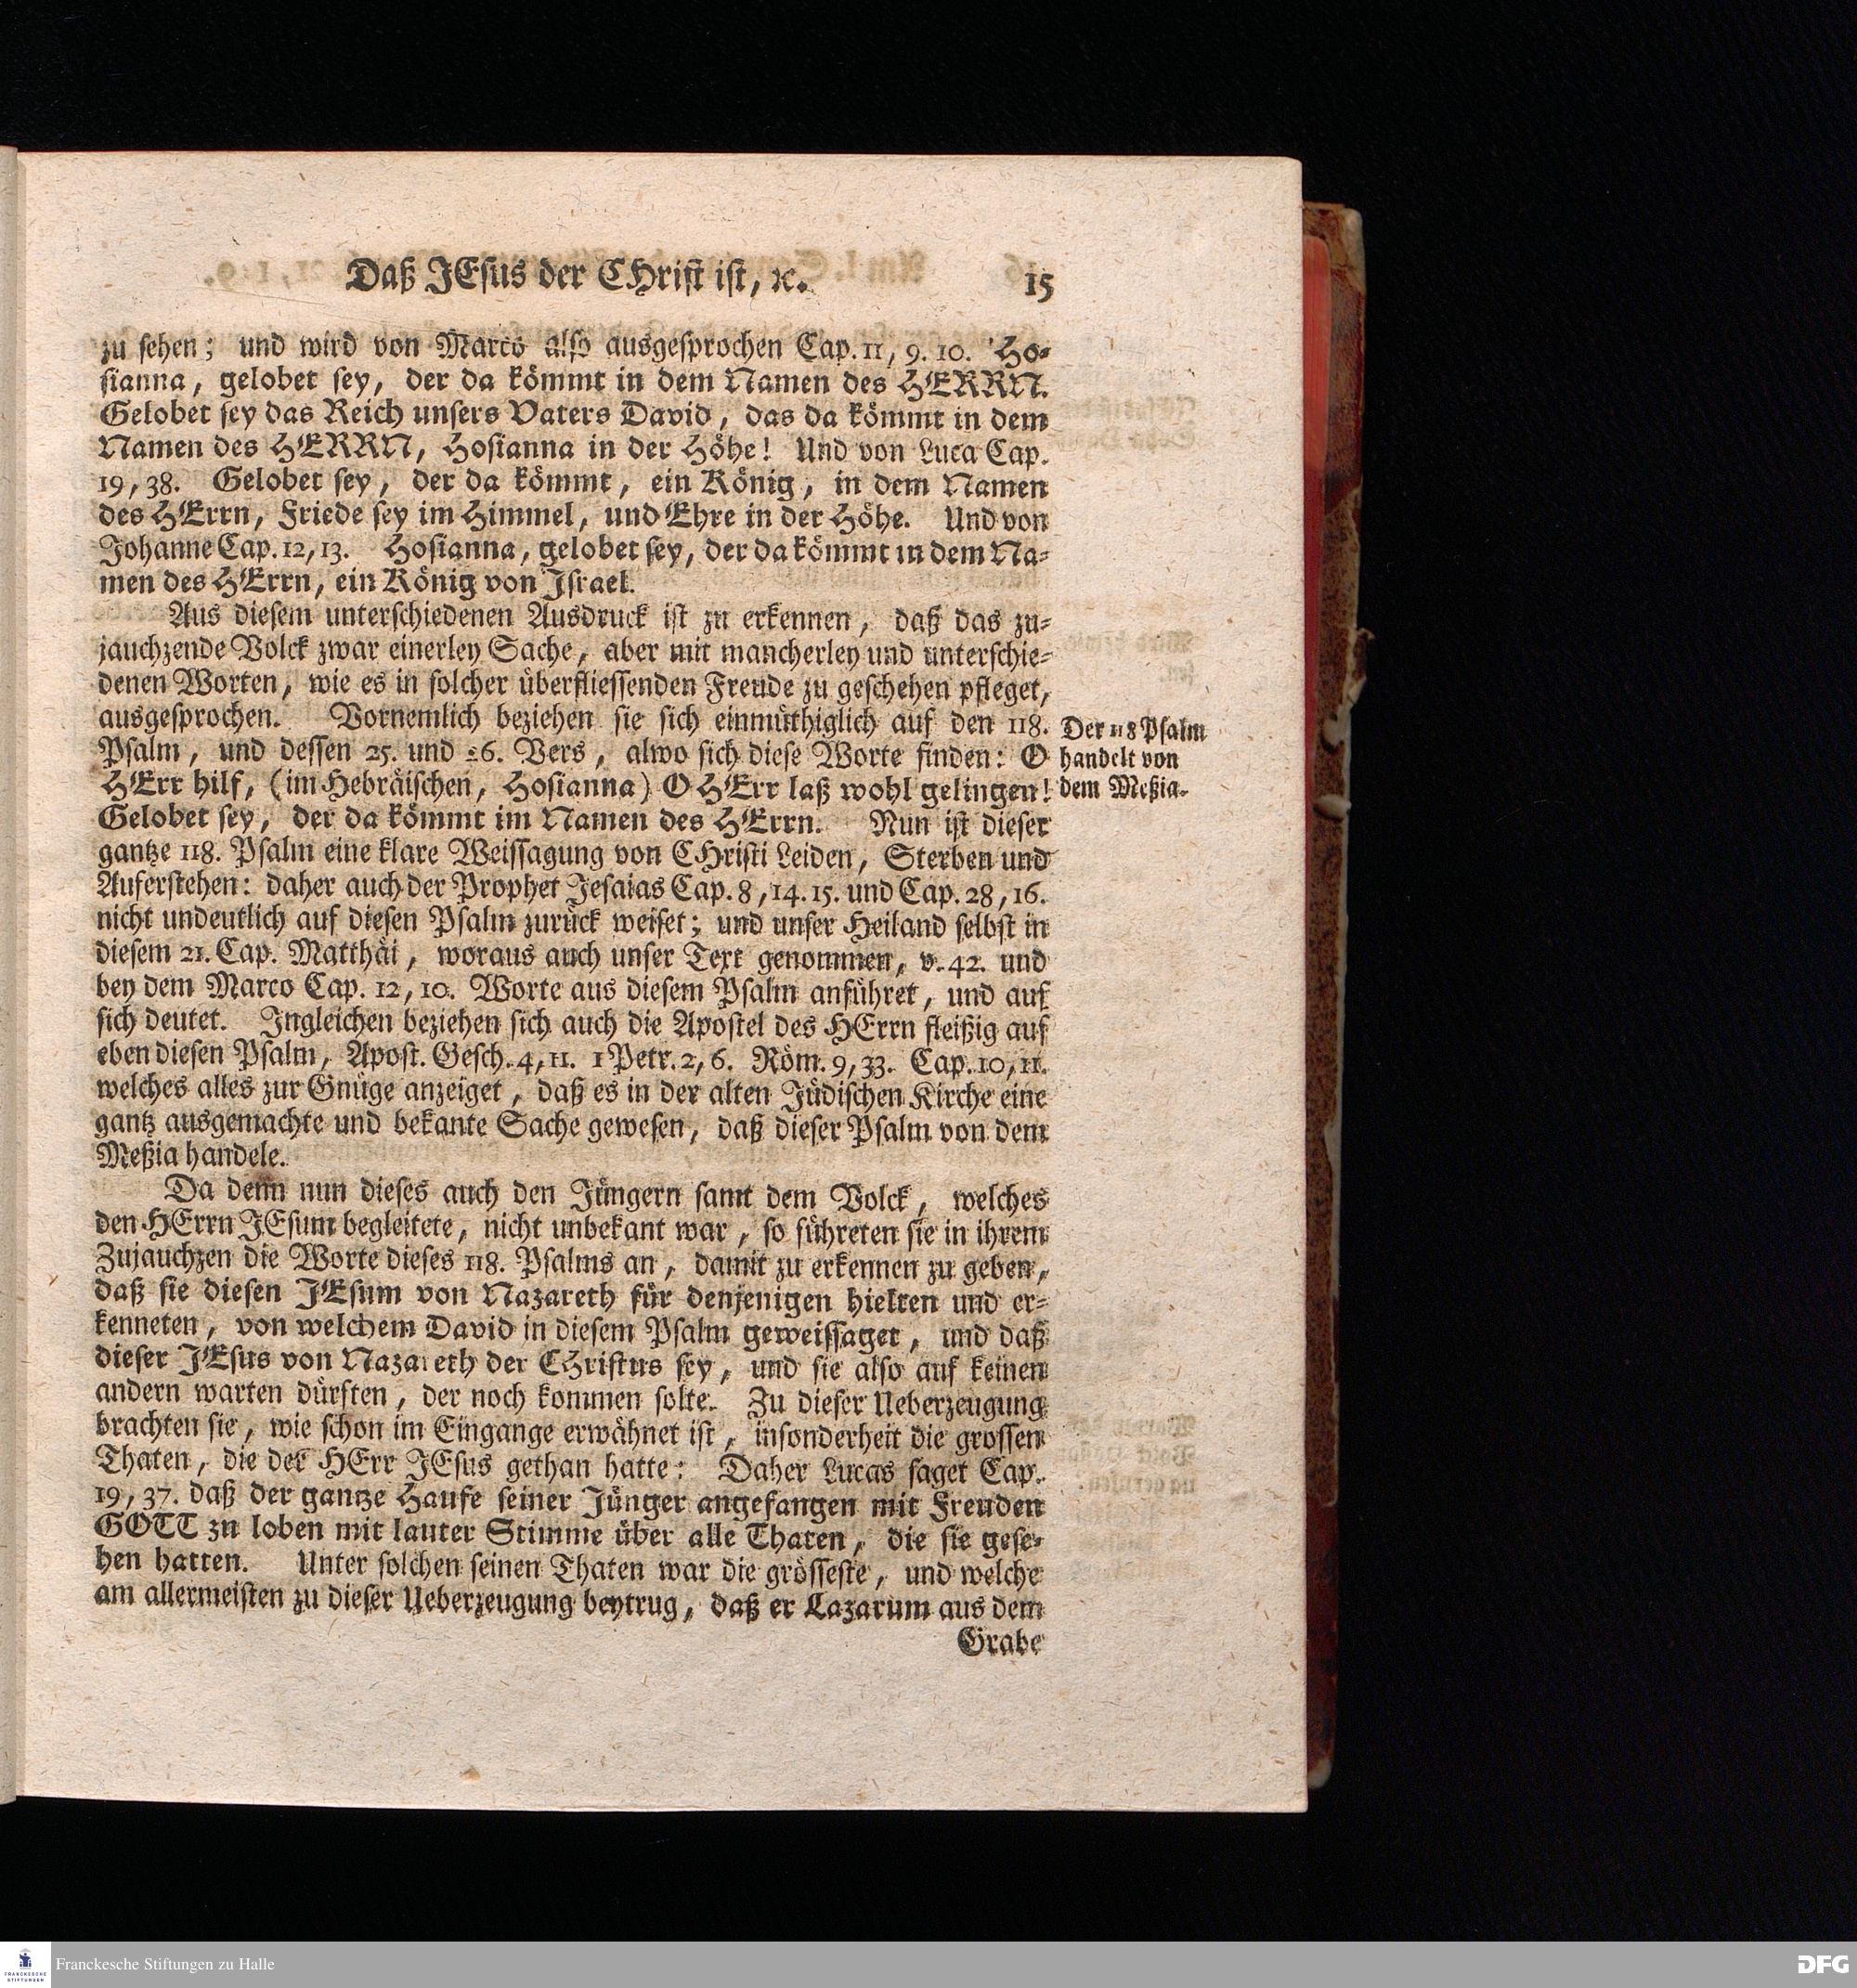 Daß JEsus der CHrist ist, ꝛc. 15
zu sehen; und wird von Marco also ausgesprochen Cap. 11, 9. 10. Ho-
sianna, gelobet sey, der da kömmt in dem Namen des HERRN.
Gelobet sey das Reich unsers Vaters David, das da kömmt in dem
Namen des HERRN, Hosianna in der Höhe! Und von Luca Cap.
19, 38. Gelobet sey, der da kömmt, ein König, in dem Namen
des HErrn, Friede sey im Himmel, und Ehre in der Höhe. Und von
Johanne Cap. 12, 13. Hosianna, gelobet sey, der da kömmt in dem Na-
men des HErrn, ein König von Israel.
Aus diesem unterschiedenen Ausdruck ist zu erkennen, daß das zu-
jauchzende Volck zwar einerley Sache, aber mit mancherley und unterschie-
denen Worten, wie es in solcher überfliessenden Freude zu geschehen pfleget,
ausgesprochen. Vornemlich beziehen sie sich einmüthiglich auf den 118.
Psalm, und dessen 25. und 26. Vers, alwo sich diese Worte finden: O
HErr hilf, (im Hebräischen, Hosianna) O HErr laß wohl gelingen!
Gelobet sey, der da kömmt im Namen des HErrn. Nun ist dieser
gantze 118. Psalm eine klare Weissagung von CHristi Leiden, Sterben und
Auferstehen: daher auch der Prophet Jesaias Cap. 8, 14. 15. und Cap. 28, 16.
nicht undeutlich auf diesen Psalm zurück weiset; und unser Heiland selbst in
diesem 21. Cap. Matthäi, woraus auch unser Text genommen, v. 42. und
bey dem Marco Cap. 12, 10. Worte aus diesem Psalm anführet, und auf
sich deutet. Ingleichen beziehen sich auch die Apostel des HErrn fleißig auf
eben diesen Psalm, Apost. Gesch. 4, 11. 1 Petr. 2, 6. Röm. 9, 33. Cap. 10, 11.
welches alles zur Gnüge anzeiget, daß es in der alten Jüdischen Kirche eine
gantz ausgemachte und bekante Sache gewesen, daß dieser Psalm von dem
Meßia handele.
Der 118 Psalm
handelt von
dem Meßia.
Da denn nun dieses auch den Jüngern samt dem Volck, welches
den HErrn JEsum begleitete, nicht unbekant war, so führeten sie in ihrem
Zujauchzen die Worte dieses 118. Psalms an, damit zu erkennen zu geben,
daß sie diesen JEsum von Nazareth für denjenigen hielten und er-
kenneten, von welchem David in diesem Psalm geweissaget, und daß
dieser JEsus von Nazareth der CHristus sey, und sie also auf keinen
andern warten dürften, der noch kommen solte. Zu dieser Ueberzeugung
brachten sie, wie schon im Eingange erwähnet ist, insonderheit die grossen
Thaten, die der HErr JEsus gethan hatte: Daher Lucas saget Cap.
19, 37. daß der gantze Haufe seiner Jünger angefangen mit Freuden
GOTT zu loben mit lauter Stimme über alle Thaten, die sie gese-
hen hatten. Unter solchen seinen Thaten war die grösseste, und welche
am allermeisten zu dieser Ueberzeugung beytrug, daß er Lazarum aus dem
Grabe
FRANCKESCHE
STIFTUNGEN
Franckesche Stiftungen zu Halle
DFG